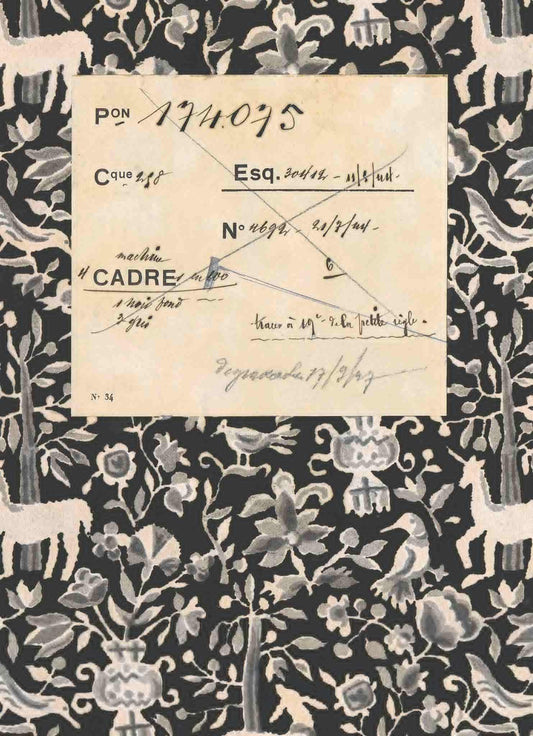 Pᵒⁿ 174.075
Cque 258 Esq. 30412 - 11/2/24-
Nº 4692 - 21/7/24-
machine
4 CADRE en 100 6
1 noir fond
3 gris
traces à 19ᶜ de la petite règle.
17/9/27
Nº 34